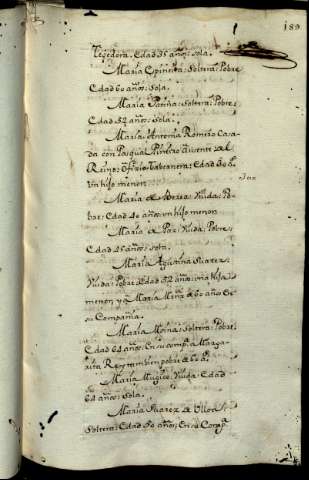 189
Tejedora: Edad 35 años: Sola.
Maria Espiñeira: Soltera: Pobre
Edad 60 años: Sola.
Maria Patiña: Soltera: Pobre:
Edad 52 años: Sola.
Maria Antonia Romero Casa
da con Pasqual Piñeiro Ausente del
Reino: Oficio Tabernera: Edad 30 a.
Un hijo menor.
Maria de Viuda: Po
bre: Edad 40 años: un hijo menor
Maria de Paz: Viuda: Pobre:
Edad 46 años: sola.
Maria Agustina Suarez
Viuda: Pobre: Edad 52 años: una hija
menor y a Maria de 60 años En
su Compañia.
Maria Moina: Soltera: Pobre:
Edad 64 años: En su comp.a Marga
rita Rey tambien pobre de
Maria Mugica: Viuda: Edad
64 años: Sola.
Maria Suarez de Ulloa
Soltera: Edad 50 años: En su Comp.a